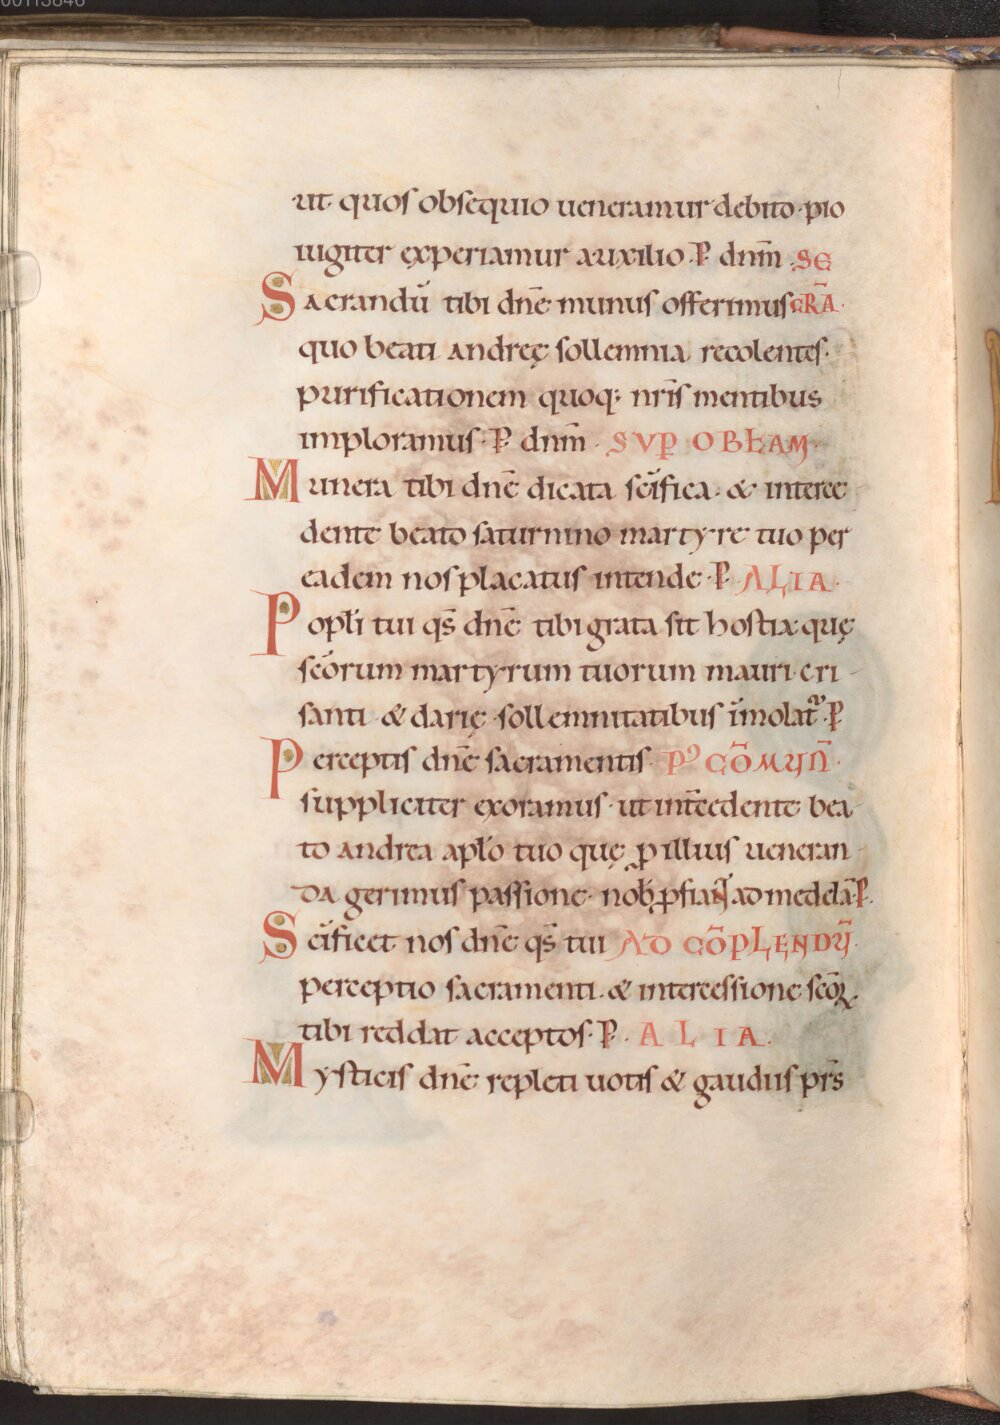 00113846
ut quos obsequio ueneramur debito· pio
iugiter experiamur auxilio· P̄ dnm̄ SE
Sacrandū tibi dn̄e munus offerimus CRĀ·
quo beati andreę sollemnia recolentes·
purificationem quoq; nr̄is mentibus
imploramus· P̄ dnm̄· SVP OBLAM·
Munera tibi dn̄e dicata sc̄ifica· & interce
dente beato saturnino martyre tuo per
eadem nos placatus intende· P̄ ALIA·
Popłi tui qs̄ dn̄e tibi grata sit hostia quę
sc̄orum martyrum tuorum mauri· cri-
santi· & darię· sollemnitatibus īmolat᷑· P̄
Perceptis dn̄e sacramentis· Pꝰ COMṼN̄·
suppliciter exoramus· ut int̄cedente bea-
to andrea apło tuo quę ꝓ illius ueneran-
da gerimus passione· nob ꝓficiant ad medelā· P̄·
Sc̄ificet nos dn̄e qs̄ tui AD CŌPLENDŪ·
perceptio sacramenti· & intercessione sc̄oꝝ·
tibi reddat acceptos· P̄· ALIA·
Mysticis dn̄e repleti uotis & gaudiis pr̄s